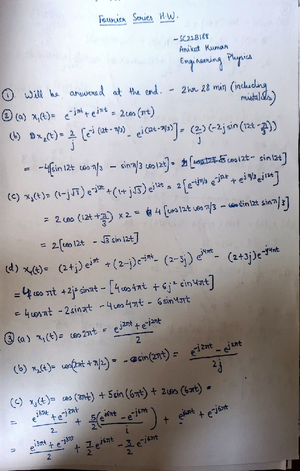 Fourier Series H.W.
- SC22B188
Aniket Kumar
Engineering Physics
① Will be answered at the end. - 2hr 28 min (including
② (a) x₁(t) = e^-jπt + e^jπt = 2cos(πt)
(b) x₂(t) = 2/j [e^-j(12t-π/3) - e^j(12t-π/3)] = (2/j)(-2j sin(12t-π/3))
= -4[sin12t cosπ/3 - sinπ/3 cos12t] = cos12t - sin12t]
(c) x₃(t) = (1-j√3) e^-j12t + (1+j√3) e^j12t = 2[e^-jπ/3 e^-j12t + e^jπ/3 e^j12t]
= 2cos(12t+π/3) × 2 = 4[cos12t cosπ/3 - sin12t sinπ/3]
= 2[cos12t - √3 sin12t]
(d) x₄(t) = (2+j) e^jπt + (2-j) e^-jπt - (2-3j) e^j4πt - (2+3j) e^-j4πt
= 4cosπt + 2j² sinπt - [4cos4πt + 6j² sin4πt]
= 4cosπt - 2sinπt - 4cos4πt - 6sin4πt
③ (a) x₁(t) = cos2πt = (e^j2πt + e^-j2πt)/2
(b) x₂(t) = cos(2πt + π/2) = -sin(2πt) = (e^-j2πt - e^j2πt)/2j
(c) x₃(t) = cos(2πt) + 5sin(6πt) + 2cos(6πt) =